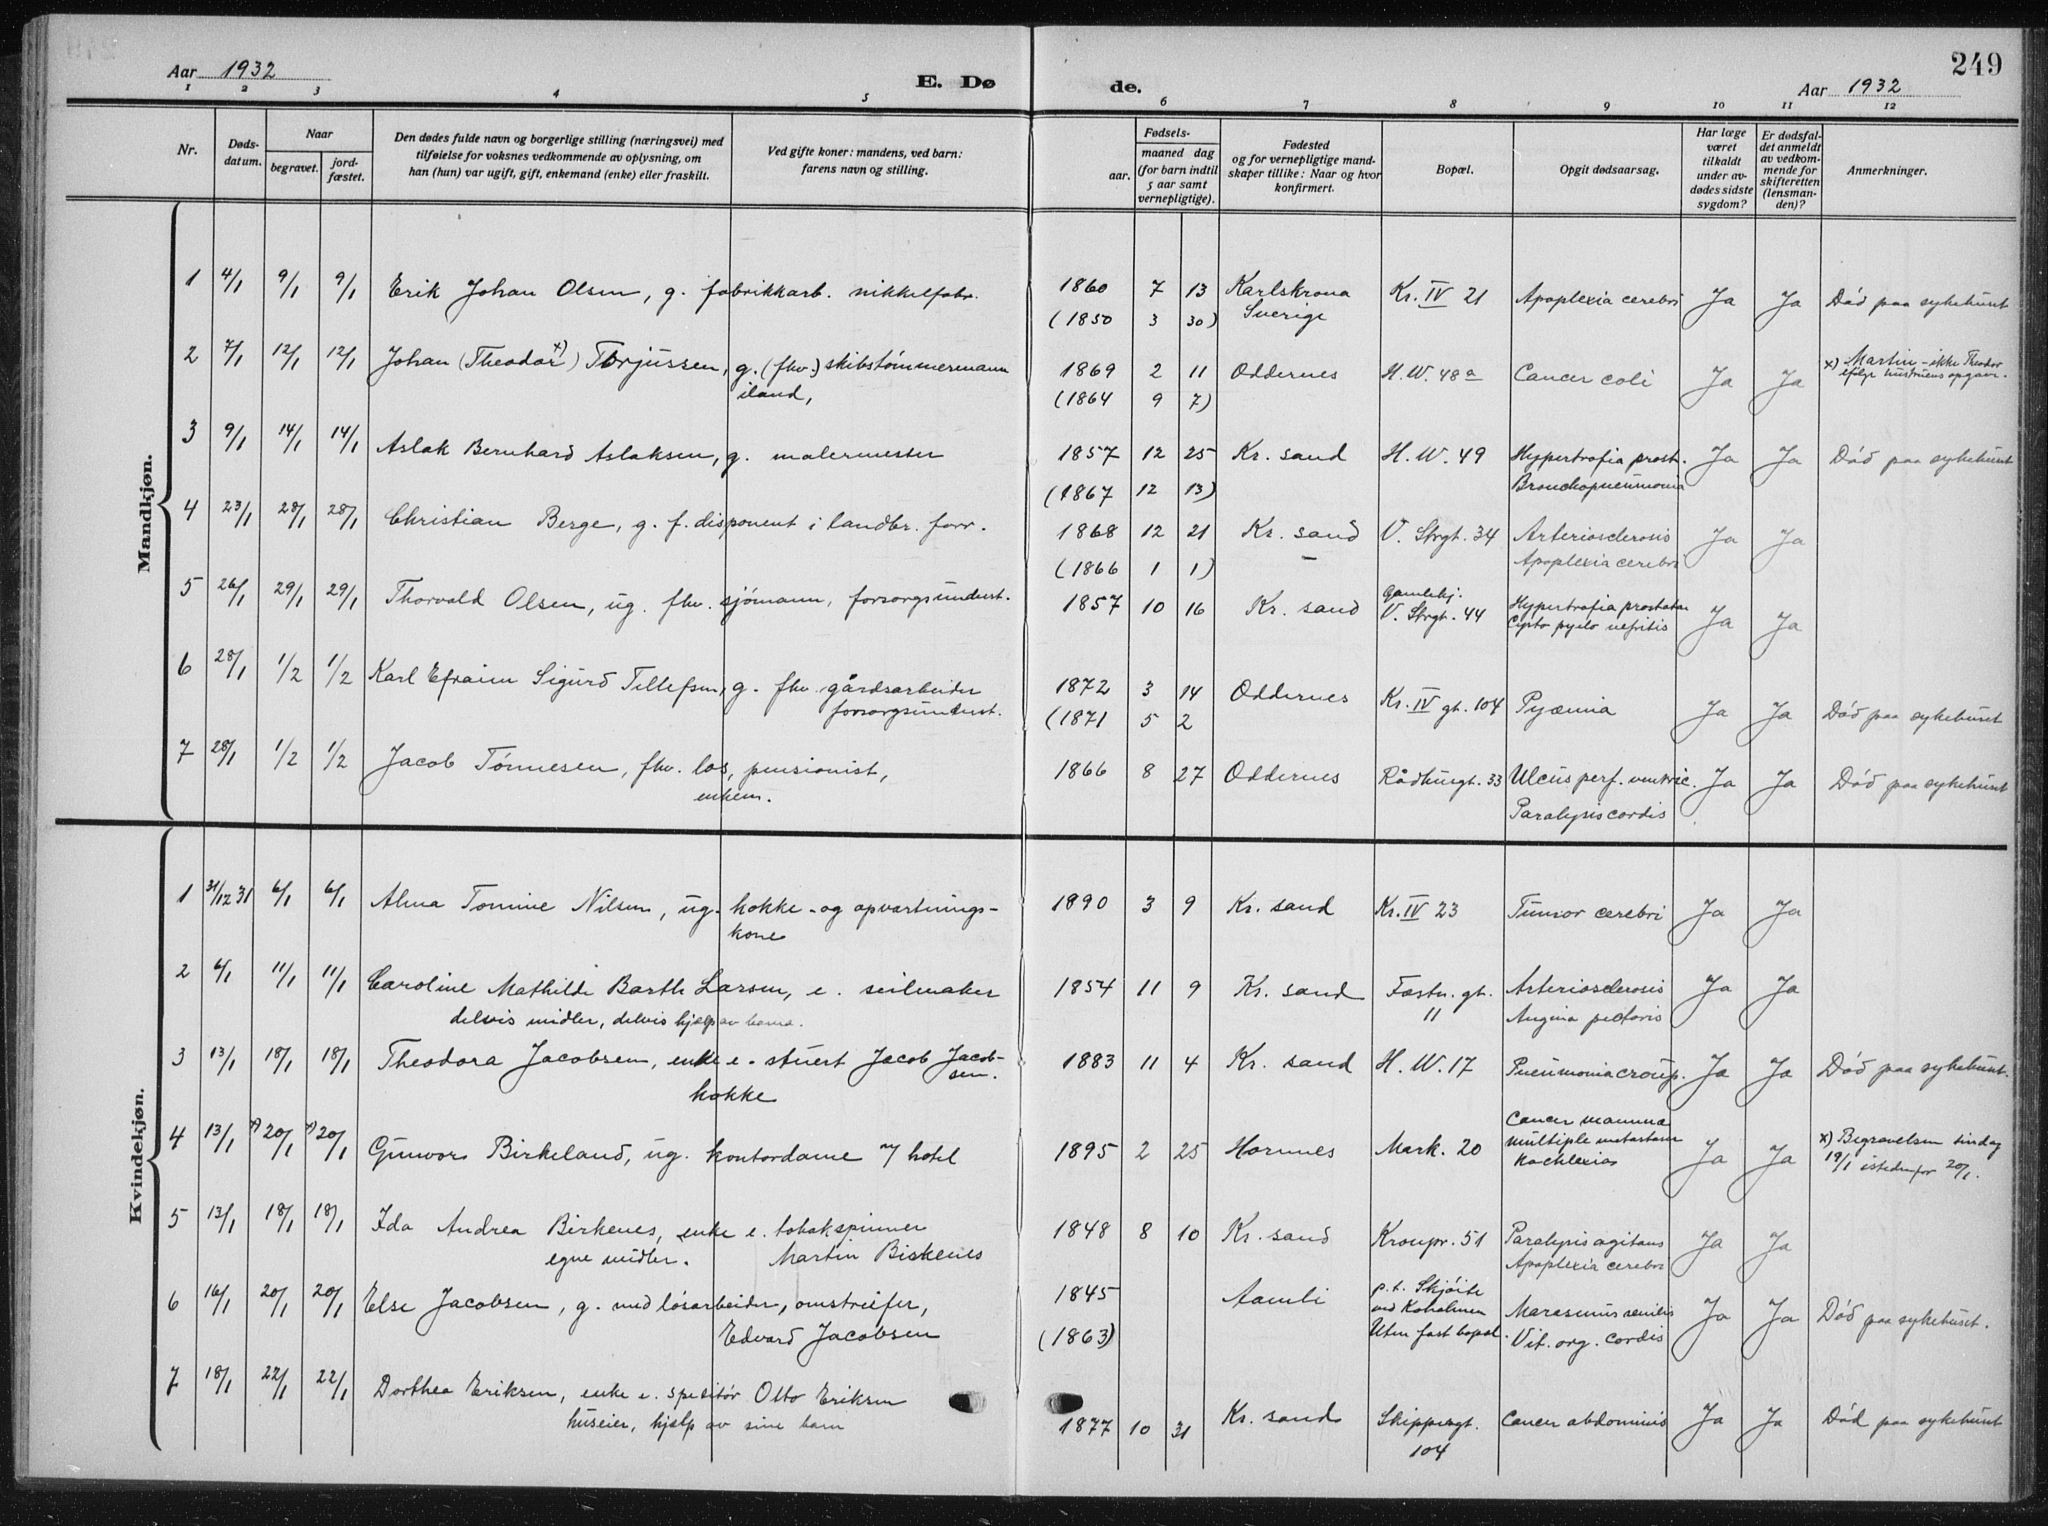 249
Aar 1932 E. Dø de. Aar 1932
1 2 3 4 5 6 7 8 9 10 11 12
Nr. Døds-datum. Naar begravet. jord-fæstet. Den dødes fulde navn og borgerlige stilling (næringsvei) med tilføielse for voksnes vedkommende av oplysning, om han (hun) var ugift, gift, enkemand (enke) eller fraskilt. Ved gifte koner: mandens, ved barn: farens navn og stilling. Fødsels- aar. maaned dag (for barn indtil 5 aar samt vernepligtige). Fødested og for vernepligtige mand-skaper tillike: Naar og hvor konfirmert. Bopæl. Opgit dødsaarsag. Har læge været tilkaldt under av-dødes sidste sygdom? Er dødsfal-det anmeldt av vedkom-mende for skifteretten (lensman-den)? Anmerkninger.
Mandkjøn.
1 4/1 9/1 9/1 Erik Johan Olsen, g. fabrikkarb. nikkelfabr. 1860 7 13 Karlskrona Kr. IV 21 Apoplexia cerebri Ja Ja Död paa sykehuset
(1850 3 30) Sverige
2 7/1 12/1 12/1 Johan (Theodor x)) Torjussen, g. (fhv.) skibstømmermann 1869 2 11 Oddernes H.W. 48a Cancer coli Ja Ja x) Martin - ikke Theodor
iland, (1864 9 7) ifølge hustruens opgave.
3 9/1 14/1 14/1 Aslak Bernhard Aslaksen, g. malermester 1857 12 25 Kr. sand H.W. 49 Hypertrofia prost. Ja Ja Död paa sykehuset
(1867 12 13) Bronchopneumonia
4 23/1 28/1 28/1 Christian Berge, g. f. disponent i landbr. forr. 1868 12 21 Kr. sand V. Strgt. 34 Arteriosclerosis Ja Ja
(1866 1 1) - Apoplexia cerebri
5 26/1 29/1 29/1 Thorvald Olsen, ug. fhv. sjömann, forsorgsunderst. 1857 10 16 Kr. sand Gamlehj. V. Strgt. 44 Hypertrofia prostatae Ja Ja
Cysto pyelo nefritis
6 28/1 1/2 1/2 Karl Efraim Sigurd Tellefsen, g. fhv. gårdsarbeider 1872 3 14 Oddernes Kr. IV gt. 104 Pyæmia Ja Ja Död paa sykehuset
forsorgsunderst. (1871 5 2
7 28/1 1/2 1/2 Jacob Tönnesen, fhv. los, pensionist, 1866 8 27 Oddernes Rådhusgt. 33 Ulcus perf. ventric. Ja Ja Död paa sykehuset
enkem. Paralysis cordis
Kvindekjøn.
1 31/12 31 6/1 6/1 Alma Tomine Nilsen, ug. kokke- og opvartnings- 1890 3 9 Kr. sand Kr. IV 23 Tumor cerebri Ja Ja
kone
2 6/1 11/1 11/1 Caroline Mathilde Barth Larsen, e. seilmaker 1854 11 9 Kr. sand Fæstn. gt. Arteriosclerosis Ja Ja
delvis midler, delvis hjælp av barna. 11 Angina pectoris
3 13/1 18/1 18/1 Theodora Jacobsen, enke e. stuert Jacob Jacob- 1883 11 4 Kr. sand H.W. 17 Pneumonia croup. Ja Ja Död paa sykehuset.
sen.
kokke
4 13/1 x) 20/1 x) 20/1 Gunvor Birkeland, ug. kontordame v/ hotel 1895 2 25 Hornnes Mark. 20 Cancer mammae Ja Ja x) Begravelsen sindag
multiple metastaser 19/1 istedenfor 20/1.
Kachlexia
5 13/1 18/1 18/1 Ida Andrea Birkenes, enke e. tobakspinner 1848 8 10 Kr. sand Kronpr. 51 Paralysis agitans Ja Ja
egne midler. Martin Birkenes Apoplexia cerebri
6 16/1 20/1 20/1 Else Jacobsen, g. med lösarbeider, omstreifer, 1845 Aamli p.t. Skjöite Marasmus senilis Ja Ja Död paa sykehuset.
Edvard Jacobsen (1863) ved Koholmen Vit. org. cordis
Uten fast bopæl.
7 18/1 22/1 22/1 Dorthea Eriksen, enke e. speditør Otto Eriksen 1877 10 31 Kr. sand Skippergt. Cancer abdominis Ja Ja Död paa sykehuset
huseier, hjælp av sine barn 104